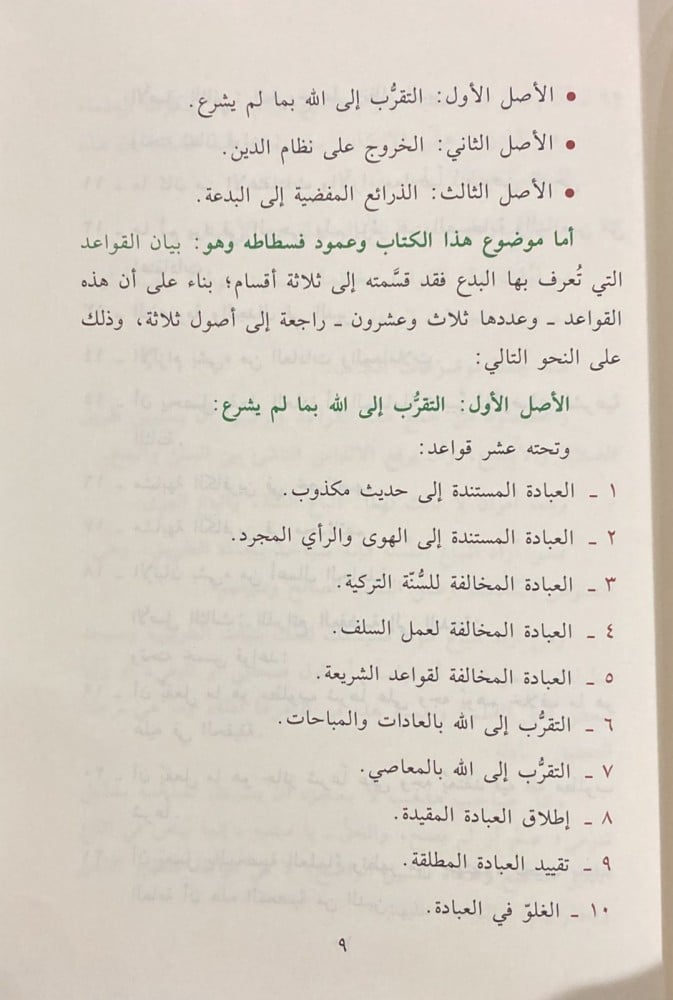 • الأصل الأول: التقرُّب إلى الله بما لم يشرع.
• الأصل الثاني: الخروج على نظام الدين.
• الأصل الثالث: الذرائع المفضية إلى البدعة.
أما موضوع هذا الكتاب وعمود فسطاطه وهو: بيان القواعد
التي تُعرف بها البدع فقد قسَّمته إلى ثلاثة أقسام؛ بناء على أن هذه
القواعد ـ وعددها ثلاث وعشرون ـ راجعة إلى أصول ثلاثة، وذلك
على النحو التالي:
الأصل الأول: التقرُّب إلى الله بما لم يشرع:
وتحته عشر قواعد:
١ ـ العبادة المستندة إلى حديث مكذوب.
٢ ـ العبادة المستندة إلى الهوى والرأي المجرد.
٣ ـ العبادة المخالفة للسُّنّة التركية.
٤ ـ العبادة المخالفة لعمل السلف.
٥ ـ العبادة المخالفة لقواعد الشريعة.
٦ ـ التقرُّب إلى الله بالعادات والمباحات.
٧ ـ التقرُّب إلى الله بالمعاصي.
٨ ـ إطلاق العبادة المقيدة.
٩ ـ تقييد العبادة المطلقة.
١٠ ـ الغلوّ في العبادة.
٩